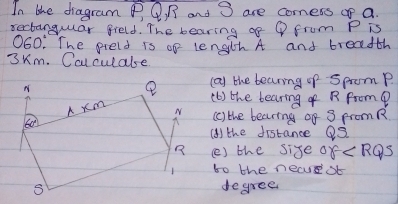 In the diagram P, Q, R and S are corners of a
rectangular field. The bearing of Q from P is
060°. The field is of length A and breadth
3 Km. Calculate
(a) the bearing of S from P.
(b) the bearing of R from Q
(c) the bearing of S from R
(d) the distance QS
(e) the size of < RQS
to the nearest
degree
N
Q
A Km
60
N
R
S